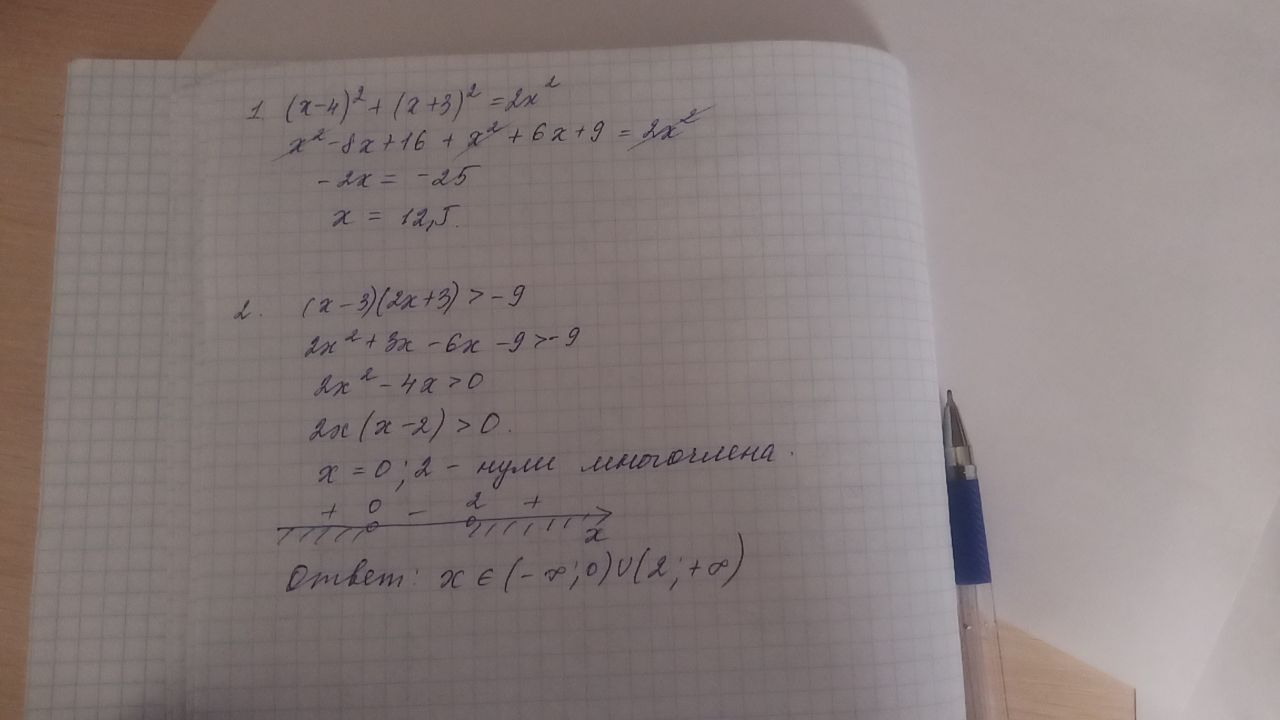 1 (x-4)² + (x+3)² = 2x²
x² - 8x + 16 + x² + 6x + 9 = 2x²
-2x = -25
x = 12,5.
2. (x-3)(2x+3) > -9
2x² + 3x - 6x - 9 > -9
2x² - 4x > 0
2x(x-2) > 0.
x = 0; 2 - нули многочлена.
+ 0 - 2 +
x
Ответ: x ∈ (-∞; 0) ∪ (2; +∞)